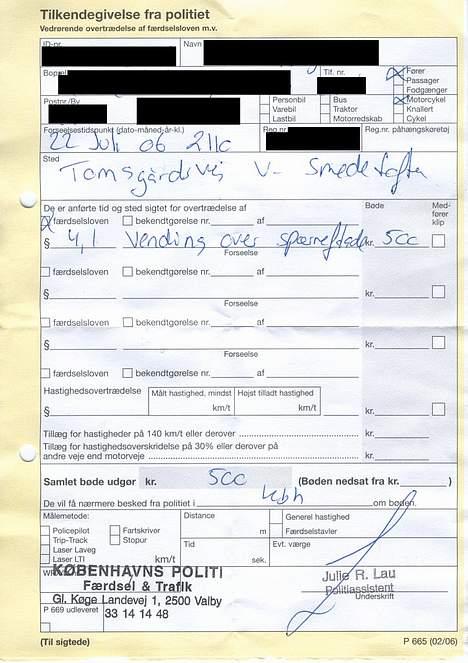 Tilkendegivelse fra politiet
Vedrørende overtrædelse af færdselsloven m.v.
ID-nr. Navn
Bopæl Tlf. nr. Fører
Passager
Fodgænger
Postnr./By Personbil Bus Motorcykel
Varebil Traktor Knallert
Lastbil Motorredskab Cykel
Forseelsestidspunkt (dato-måned-år-kl.) Reg.nr. Reg.nr. påhængskøretøj
22 Juli 06 2110
Sted
Tomsgårdsvej V- Smedetoften
De er anførte tid og sted sigtet for overtrædelse af Bøde Med-
fører
klip
færdselsloven bekendtgørelse nr. af
§ 4,1 Vending over spærreflade kr. 500
Forseelse
færdselsloven bekendtgørelse nr. af
§ kr.
Forseelse
færdselsloven bekendtgørelse nr. af
§ kr.
Forseelse
færdselsloven bekendtgørelse nr. af
Hastighedsovertrædelse Målt hastighed, mindst Højst tilladt hastighed
§ km/t km/t kr.
Tillæg for hastigheder på 140 km/t eller derover
Tillæg for hastighedsoverskridelse på 30% eller derover på
andre veje end motorveje kr.
Samlet bøde udgør kr. 500 (Bøden nedsat fra kr. )
De vil få nærmere besked fra politiet i Kbh om bøden.
Målemetode: Distance Generel hastighed
Policepilot Fartskriver m Færdselstavler
Trip-Track Stopur Tid Evt. værge
Laser Laveg
Laser LTI km/t sek.
KØBENHAVNS POLITI
Færdsel & Trafik
Gl. Køge Landevej 1, 2500 Valby
33 14 14 48
Julie R. Lau
Politiassistent
Underskrift
P 669 udleveret
(Til sigtede) P 665 (02/06)